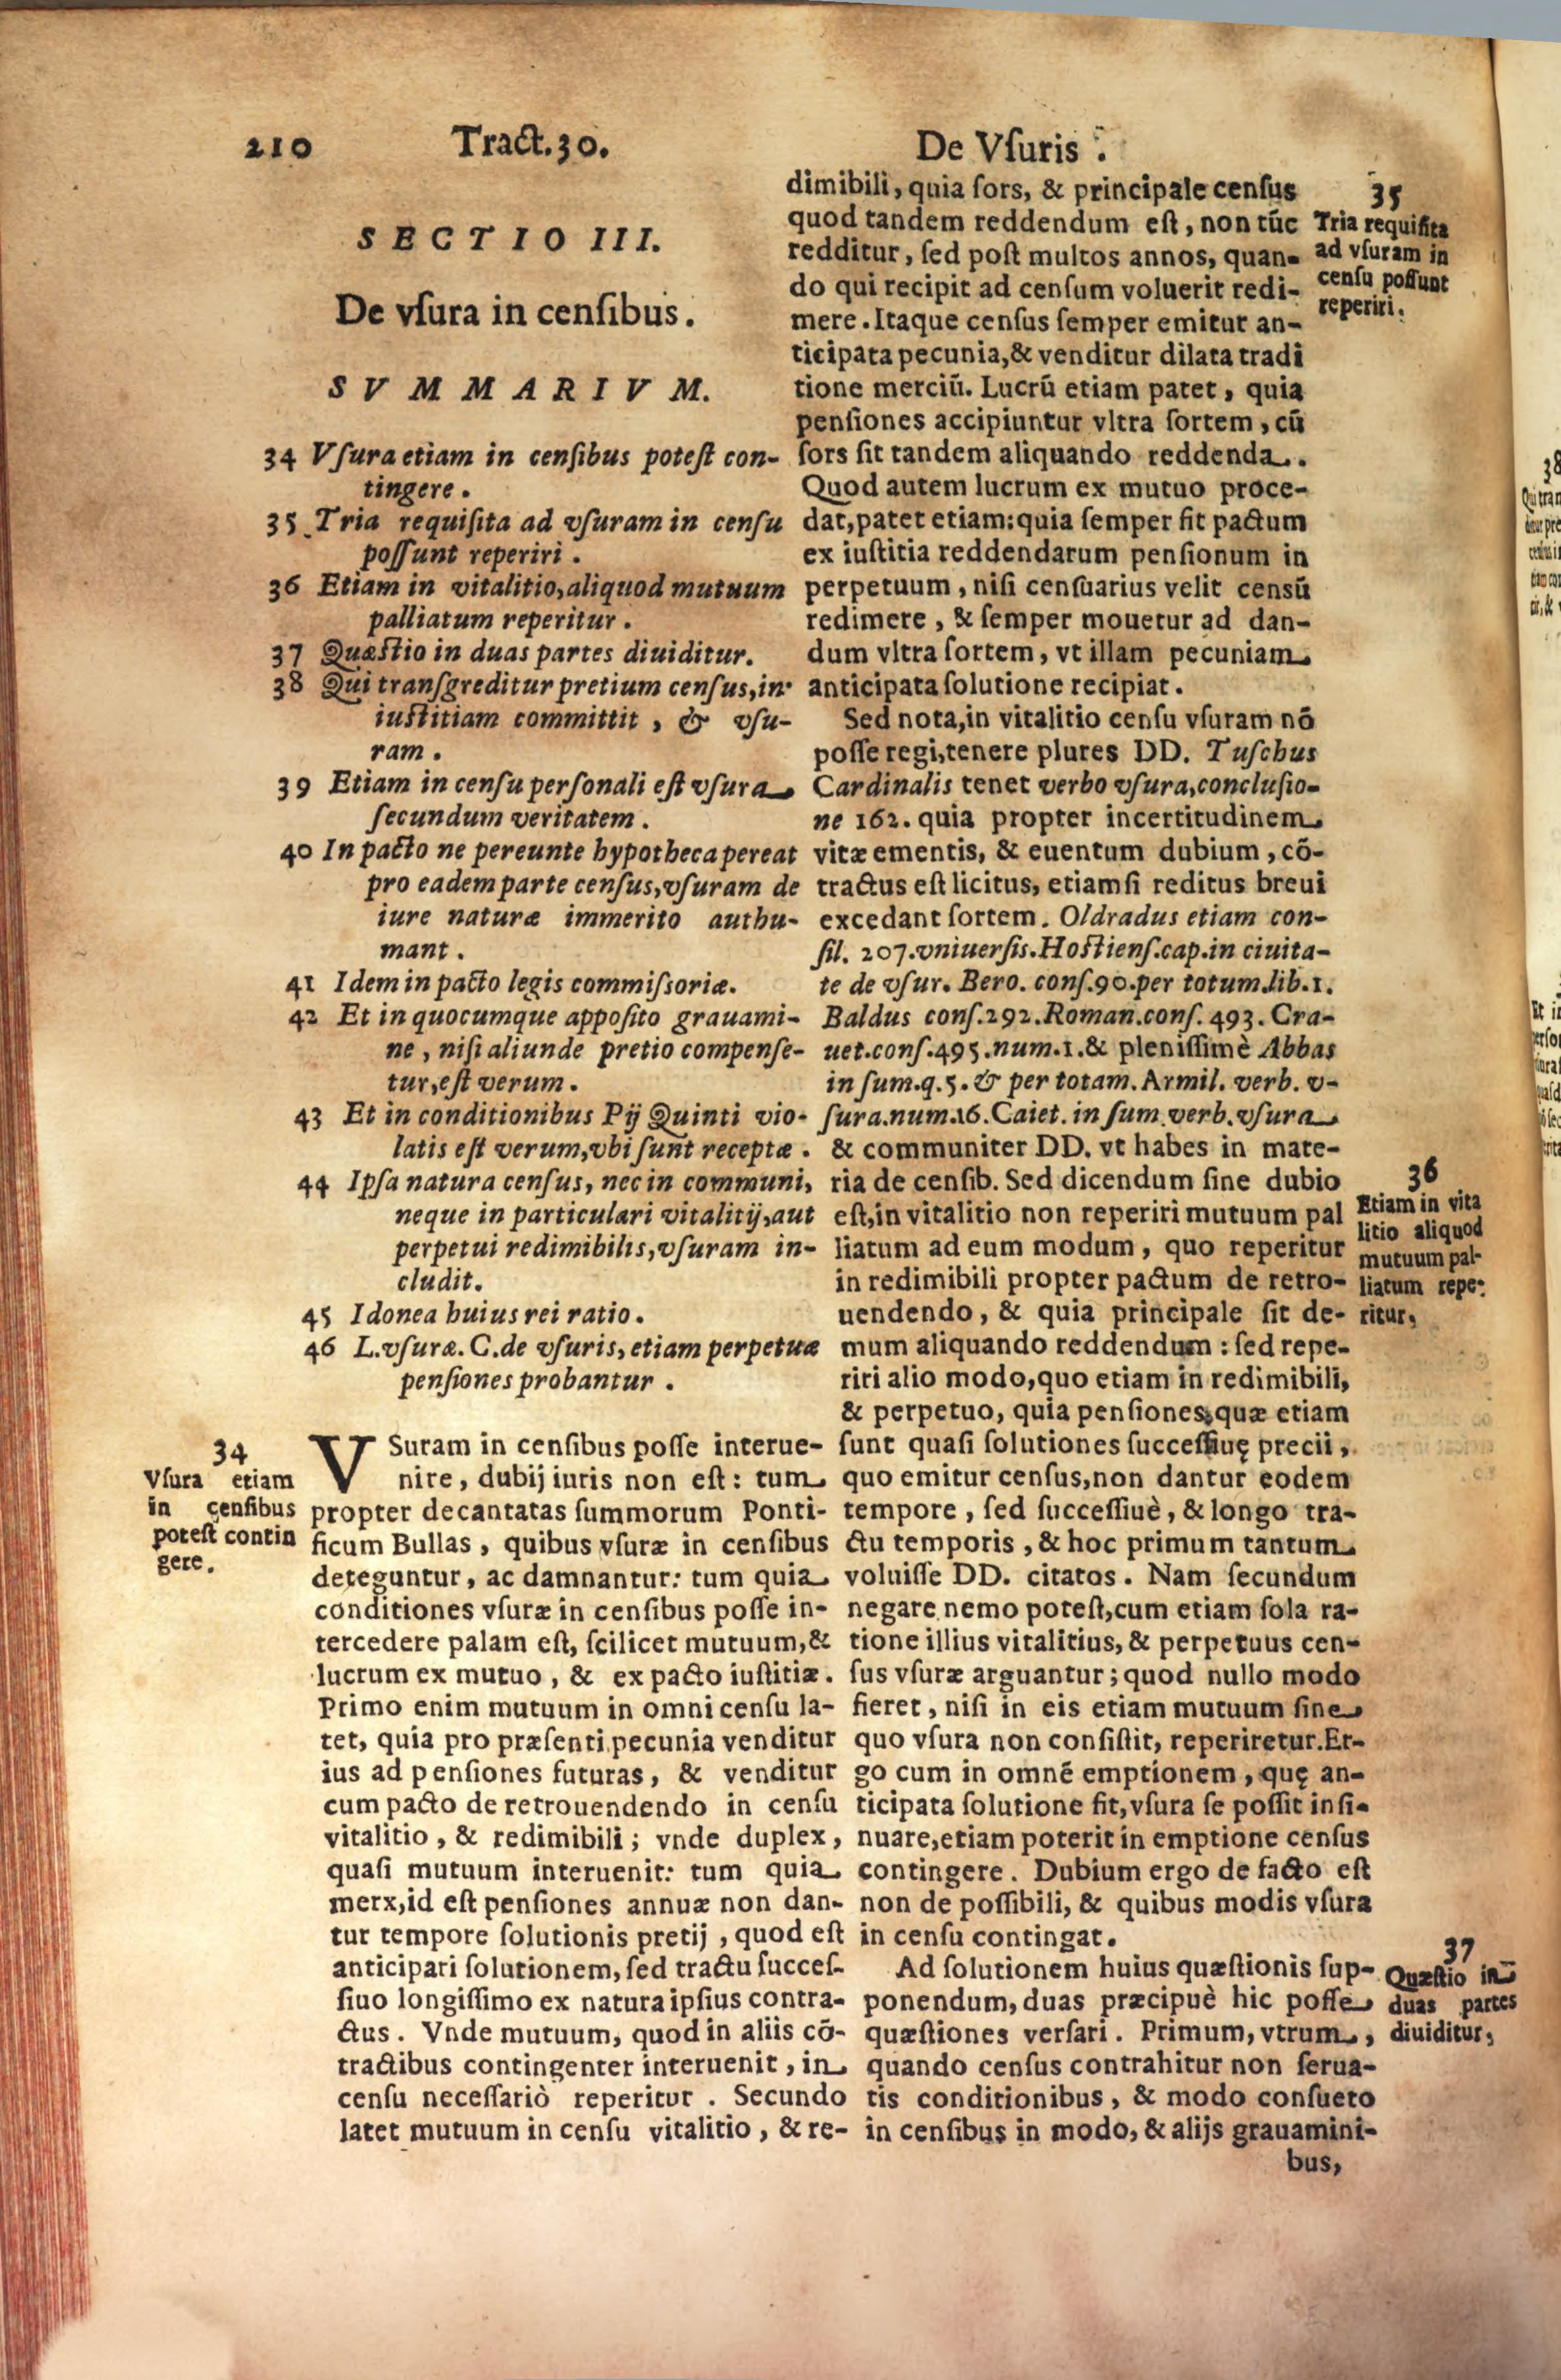 210 Tract.30. De Vſuris .
SECTIO III.
De vſura in cenſibus.
SVMMARIVM.
34 Vſura etiam in cenſibus poteſt con-
tingere.
35 Tria requiſita ad vſuram in cenſu
poſſunt reperiri.
36 Etiam in vitalitio, aliquod mutuum
palliatum reperitur.
37 Quæſtio in duas partes diuiditur.
38 Qui tranſgreditur pretium cenſus, in-
iuſtitiam committit, & vſu-
ram.
39 Etiam in cenſu perſonali eſt vſura
ſecundum veritatem.
40 In pacto ne pereunte hypotheca pereat
pro eadem parte cenſus, vſuram de
iure naturæ immerito authu-
mant.
41 Idem in pacto legis commiſſoriæ.
42 Et in quocumque appoſito grauami-
ne, niſi aliunde pretio compenſe-
tur, eſt verum.
43 Et in conditionibus Pij Quinti vio-
latis eſt verum, vbi ſunt receptæ.
44 Ipſa natura cenſus, nec in communi,
neque in particulari vitalitij, aut
perpetui redimibilis, vſuram in-
cludit.
45 Idonea huius rei ratio.
46 L. vſuræ. C. de vſuris, etiam perpetuæ
penſiones probantur.
34
Vſura etiam
in cenſibus
poteſt contin
gere.
VSuram in cenſibus poſſe interue-
nire, dubij iuris non eſt: tum
propter decantatas ſummorum Ponti-
ficum Bullas, quibus vſuræ in cenſibus
deteguntur, ac damnantur: tum quia
conditiones vſuræ in cenſibus poſſe in-
tercedere palam eſt, ſcilicet mutuum, &
lucrum ex mutuo, & ex pacto iuſtitiæ.
Primo enim mutuum in omni cenſu la-
tet, quia pro præſenti pecunia venditur
ius ad penſiones futuras, & venditur
cum pacto de retrouendendo in cenſu
vitalitio, & redimibili; vnde duplex,
quaſi mutuum interuenit: tum quia
merx, id eſt penſiones annuæ non dan-
tur tempore ſolutionis pretij, quod eſt
anticipari ſolutionem, ſed tractu ſucceſ-
ſiuo longiſſimo ex natura ipſius contra-
ctus. Vnde mutuum, quod in aliis cō-
tractibus contingenter interuenit, in
cenſu neceſſariò reperitur. Secundo
latet mutuum in cenſu vitalitio, & re-
dimibili, quia ſors, & principale cenſus
quod tandem reddendum eſt, non tūc
redditur, ſed poſt multos annos, quan-
do qui recipit ad cenſum voluerit redi-
mere. Itaque cenſus ſemper emitur an-
ticipata pecunia, & venditur dilata tradi
tione merciū. Lucrū etiam patet, quia
penſiones accipiuntur vltra ſortem, cū
ſors ſit tandem aliquando reddenda.
Quod autem lucrum ex mutuo proce-
dat, patet etiam: quia ſemper fit pactum
ex iuſtitia reddendarum penſionum in
perpetuum, niſi cenſuarius velit censū
redimere, & ſemper mouetur ad dan-
dum vltra ſortem, vt illam pecuniam
anticipata ſolutione recipiat.
35
Tria requiſita
ad vſuram in
cenſu poſſunt
reperiri.
Sed nota, in vitalitio cenſu vſuram nō
poſſe regi, tenere plures DD. Tuſchus
Cardinalis tenet verbo vſura, concluſio-
ne 162. quia propter incertitudinem
vitæ ementis, & euentum dubium, cō-
tractus eſt licitus, etiamſi reditus breui
excedant ſortem. Oldradus etiam con-
ſil. 207. vniuerſis. Hoſtienſ. cap. in ciuita-
te de vſur. Bero. conſ. 90. per totum. lib. 1.
Baldus conſ. 292. Roman. conſ. 493. Cra-
uet. conſ. 495. num. 1. & pleniſſimè Abbas
in ſum. q. 5. & per totam. Armil. verb. v-
ſura. num. 16. Caiet. in ſum. verb. vſura
& communiter DD. vt habes in mate-
ria de cenſib. Sed dicendum ſine dubio
eſt, in vitalitio non reperiri mutuum pal
liatum ad eum modum, quo reperitur
in redimibili propter pactum de retro-
uendendo, & quia principale ſit de-
mum aliquando reddendum: ſed repe-
riri alio modo, quo etiam in redimibili,
& perpetuo, quia penſiones, quæ etiam
ſunt quaſi ſolutiones ſucceſſiuę precii,
quo emitur cenſus, non dantur eodem
tempore, ſed ſucceſſiuè, & longo tra-
ctu temporis, & hoc primum tantum
voluiſſe DD. citatos. Nam ſecundum
negare nemo poteſt, cum etiam ſola ra-
tione illius vitalitius, & perpetuus cen-
ſus vſuræ arguantur; quod nullo modo
fieret, niſi in eis etiam mutuum ſine
quo vſura non conſiſtit, reperiretur. Er-
go cum in omnē emptionem, quę an-
ticipata ſolutione fit, vſura ſe poſſit inſi-
nuare, etiam poterit in emptione cenſus
contingere. Dubium ergo de facto eſt
non de poſſibili, & quibus modis vſura
in cenſu contingat.
36
Etiam in vita
litio aliquod
mutuum pal-
liatum repe-
ritur,
Ad ſolutionem huius quæſtionis ſup-
ponendum, duas præcipuè hic poſſe
quæſtiones verſari. Primum, vtrum,
quando cenſus contrahitur non ſerua-
tis conditionibus, & modo conſueto
in cenſibus in modo, & alijs grauamini-
bus,
37
Quæſtio in
duas partes
diuiditur,